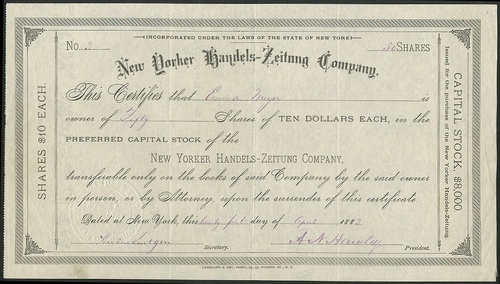 INCORPORATED UNDER THE LAWS OF THE STATE OF NEW YORK
No. 3 50 SHARES
New Yorker Handels-Zeitung Company.
This Certifies that Emma Meyer is
owner of Fifty Shares of TEN DOLLARS EACH, in the
PREFERRED CAPITAL STOCK of the
NEW YORKER HANDELS-ZEITUNG COMPANY,
transferable only on the books of said Company by the said owner
in person, or by Attorney, upon the surrender of this certificate.
Dated at New York, this twenty first day of April 1883
Secretary. President.
SHARES $10 EACH.
CAPITAL STOCK, $8,000
Issued for the purchase of the New Yorker Handels-Zeitung.